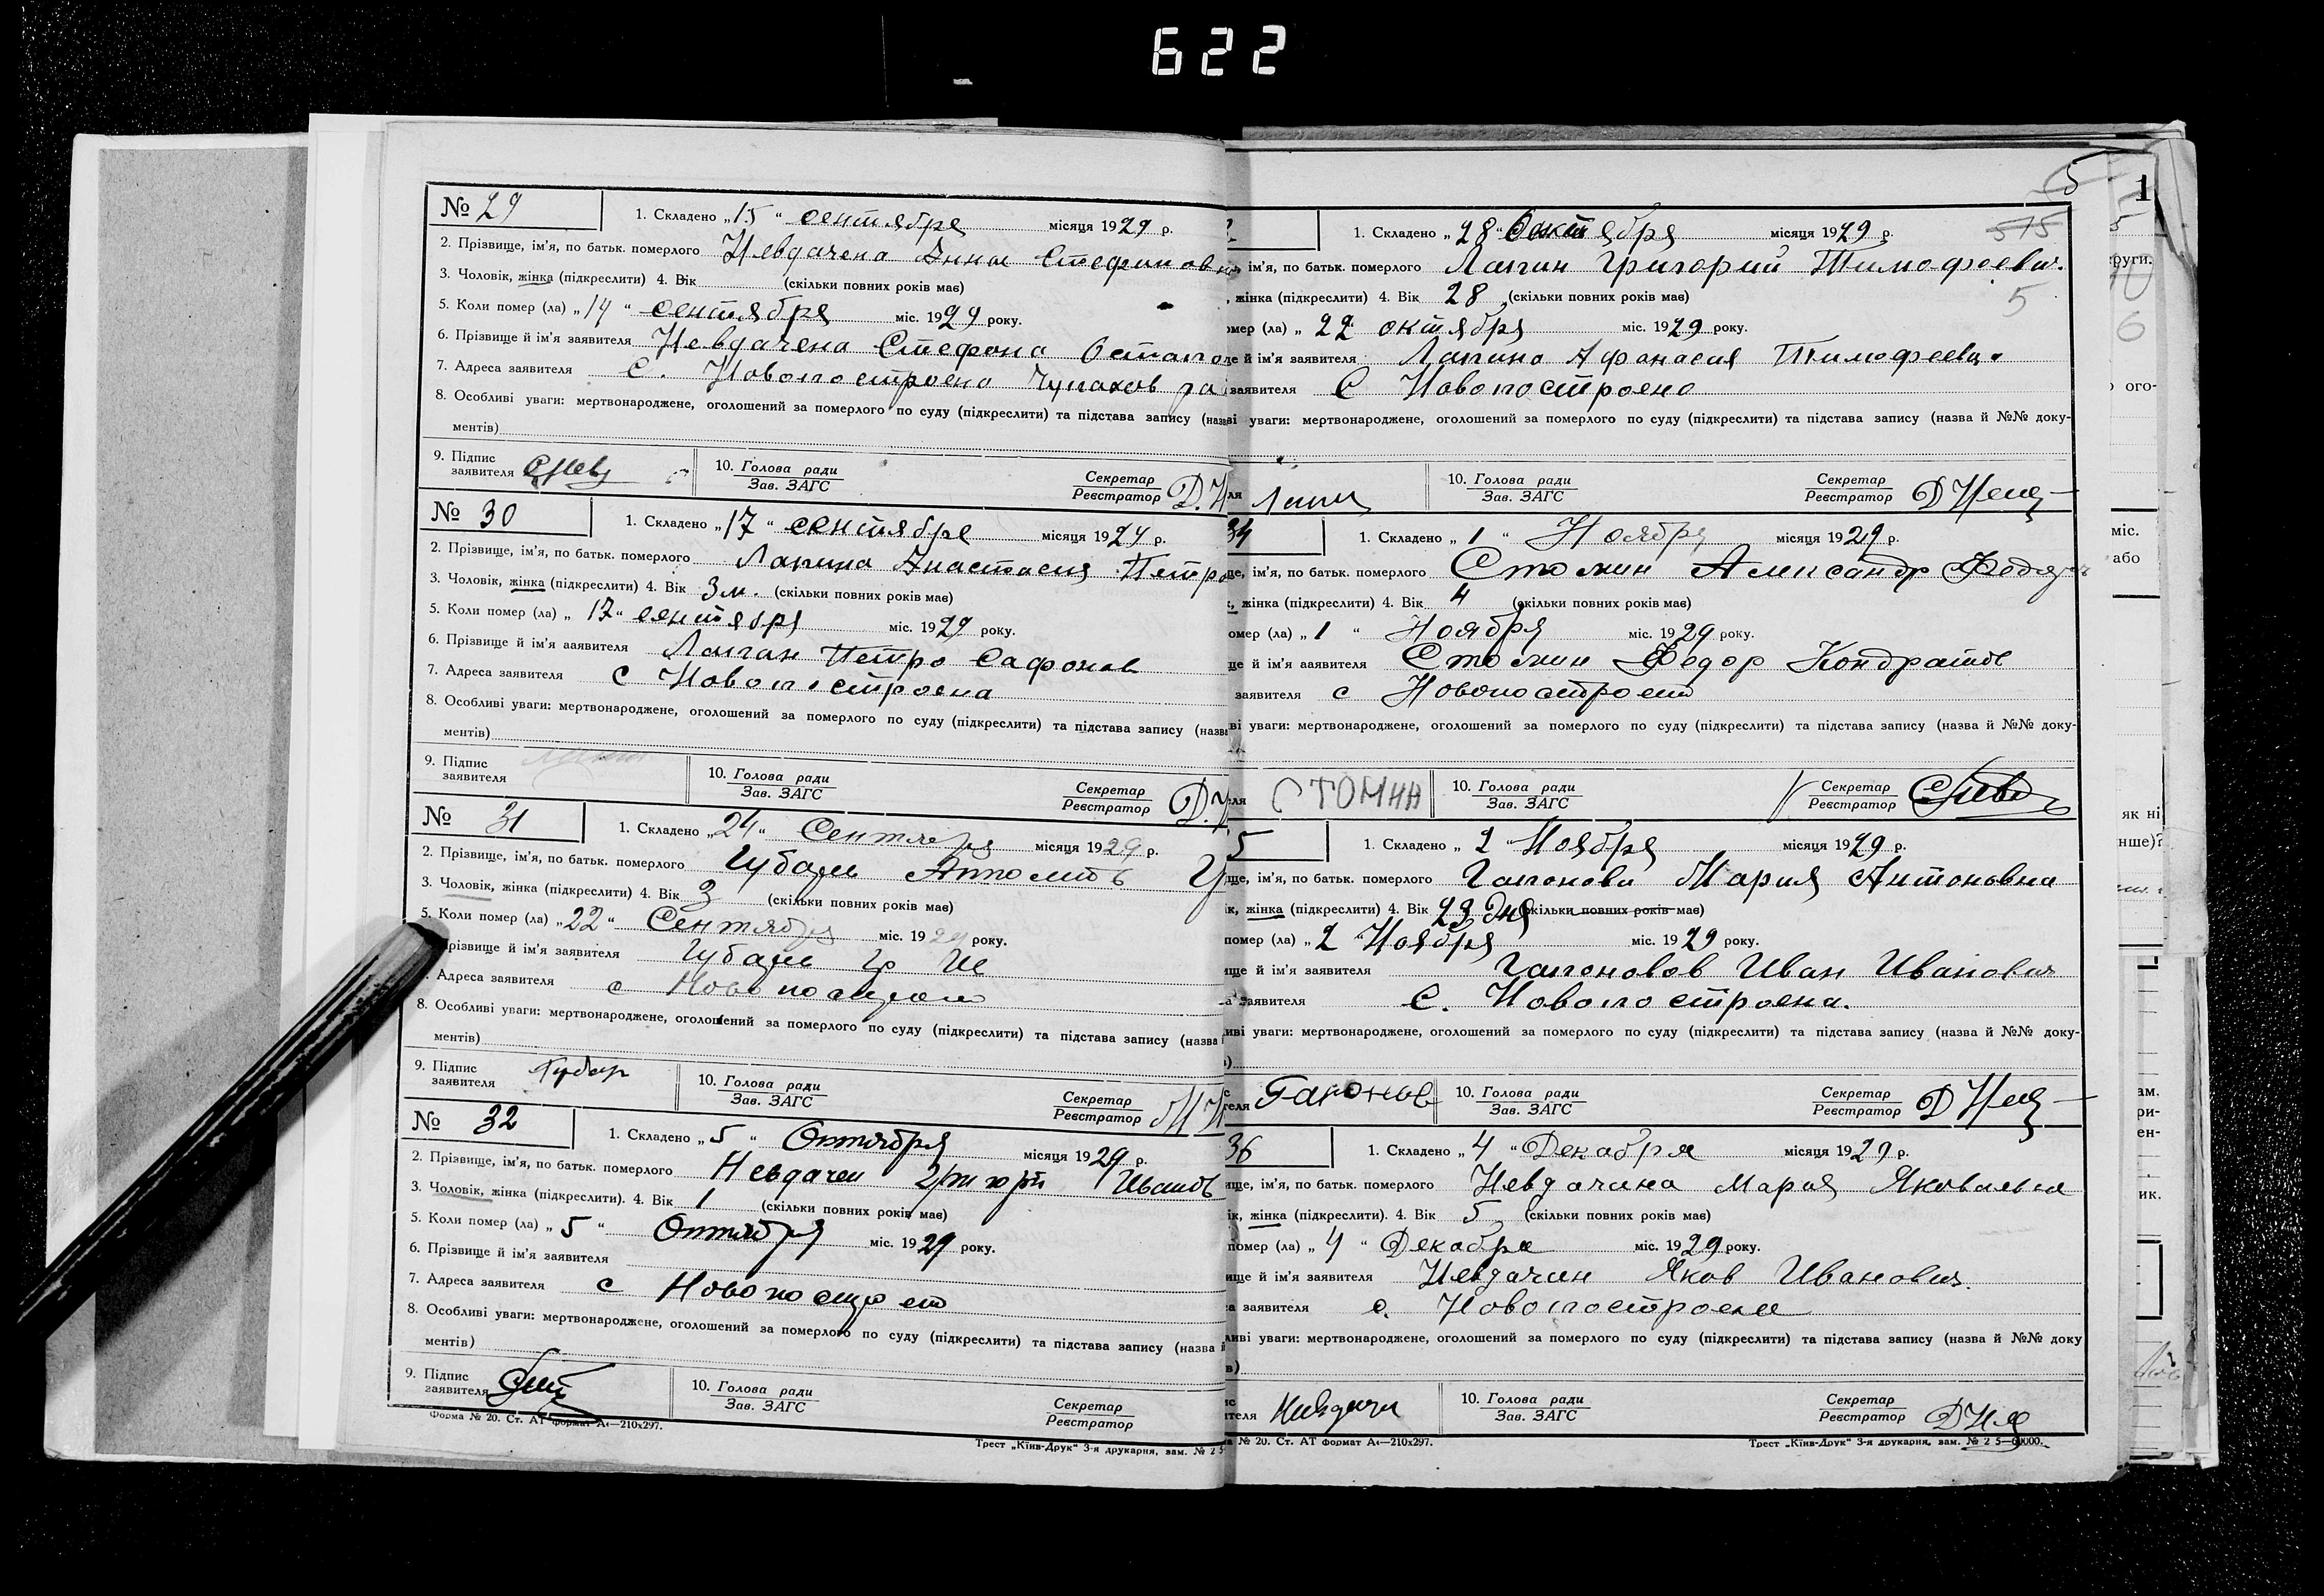 622
№ 29
1. Складено „15“ сентября місяця 1929 р.
2. Прізвище, ім'я, по батьк. померлого Невдачена Анна Стефановн
3. Чоловік, жінка (підкреслити) 4. Вік (скільки повних років має)
5. Коли помер (ла) „14“ сентября міс. 1929 року.
6. Прізвище й ім'я заявителя Невдачена Стефона
7. Адреса заявителя С. Новопостроено
8. Особливі уваги: мертвонароджене, оголошений за померлого по суду (підкреслити) та підстава запису (назва
ментів)
9. Підпис заявителя
10. Голова ради
Зав. ЗАГС
Секретар
Реєстратор Д.Н
№ 30
1. Складено „17“ сентября місяця 1929 р.
2. Прізвище, ім'я, по батьк. померлого Лапина Анастасия Петро
3. Чоловік, жінка (підкреслити) 4. Вік 3 м. (скільки повних років має)
5. Коли помер (ла) „17“ сентября міс. 1929 року.
6. Прізвище й ім'я заявителя Лапин Петро Сафонов
7. Адреса заявителя с Новопостроена
8. Особливі уваги: мертвонароджене, оголошений за померлого по суду (підкреслити) та підстава запису (назва
ментів)
9. Підпис заявителя
10. Голова ради
Зав. ЗАГС
Секретар
Реєстратор Д.
№ 31
1. Складено „24“ Сентября місяця 1929 р.
2. Прізвище, ім'я, по батьк. померлого Губарь
3. Чоловік, жінка (підкреслити) 4. Вік 3 (скільки повних років має)
5. Коли помер (ла) „22“ Сентября міс. 1929 року.
прізвище й ім'я заявителя Губарь Гр
Адреса заявителя с Новопостроено
8. Особливі уваги: мертвонароджене, оголошений за померлого по суду (підкреслити) та підстава запису (назва
ментів)
9. Підпис заявителя Губарь
10. Голова ради
Зав. ЗАГС
Секретар
Реєстратор
№ 32
1. Складено „5“ Октября місяця 1929 р.
2. Прізвище, ім'я, по батьк. померлого Невдачен Григорій Иванов
3. Чоловік, жінка (підкреслити). 4. Вік 1 (скільки повних років має)
5. Коли помер (ла) „5“ Октября міс. 1929 року.
6. Прізвище й ім'я заявителя
7. Адреса заявителя с Новопостроено
8. Особливі уваги: мертвонароджене, оголошений за померлого по суду (підкреслити) та підстава запису (назва й
ментів)
9. Підпис заявителя
10. Голова ради
Зав. ЗАГС
Секретар
Реєстратор
Форма № 20. Ст. АТ формат А4—210x297.
Трест „Київ-Друк“ 3-я друкарня, зам. № 2 5
575
5
1. Складено „28“ Октября місяця 1929 р.
ім'я, по батьк. померлого Лапин Григорий Тимофеевич
жінка (підкреслити) 4. Вік 28 (скільки повних років має)
омер (ла) „22“ октября міс. 1929 року.
й ім'я заявителя Лапина Афанасия Тимофеевич
заявителя С Новопостроено
ві уваги: мертвонароджене, оголошений за померлого по суду (підкреслити) та підстава запису (назва й №№ доку-
ля Лапин
10. Голова ради
Зав. ЗАГС
Секретар
Реєстратор
34
1. Складено „1“ Ноября місяця 1929 р.
ще, ім'я, по батьк. померлого Стомин Александр
жінка (підкреслити) 4. Вік 4 (скільки повних років має)
омер (ла) „1“ Ноября міс. 1929 року.
ще й ім'я заявителя Стомин Федор Кондратов
заявителя с Новопостроено
ві уваги: мертвонароджене, оголошений за померлого по суду (підкреслити) та підстава запису (назва й №№ доку-
ля СТОМИН
10. Голова ради
Зав. ЗАГС
Секретар
Реєстратор
5
1. Складено „2“ Ноября місяця 1929 р.
ще, ім'я, по батьк. померлого Гапонова Мария Антоновна
ік, жінка (підкреслити) 4. Вік 23 дня (скільки повних років має)
помер (ла) „2“ Ноября міс. 1929 року.
ще й ім'я заявителя Гапоновов Иван Иванович
заявителя С. Новопостроена.
иві уваги: мертвонароджене, оголошений за померлого по суду (підкреслити) та підстава запису (назва й №№ доку-
теля Гапонов
10. Голова ради
Зав. ЗАГС
Секретар
Реєстратор
36
1. Складено „4“ Декабря місяця 1929 р.
ище, ім'я, по батьк. померлого Невдачина Мария Яковлевна
ік, жінка (підкреслити). 4. Вік 5 (скільки повних років має)
помер (ла) „4“ Декабря міс. 1929 року.
ище й ім'я заявителя Невдачин Яков Иванович
а заявителя с. Новопостроена
ливі уваги: мертвонароджене, оголошений за померлого по суду (підкреслити) та підстава запису (назва й №№ доку
в)
теля
10. Голова ради
Зав. ЗАГС
Секретар
Реєстратор
№ 20. Ст. АТ формат А4—210x297.
Трест „Київ-Друк“ 3-я друкарня, зам. № 2 5—60000.
1
руги.
6
ого-
міс.
або
як ні
нше)?
ам.
ри-
ен-
ик.